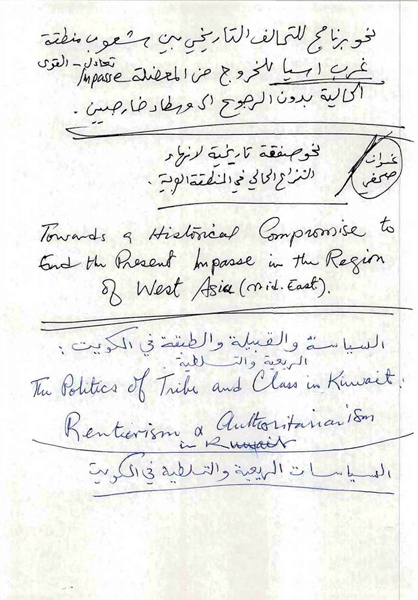 نحو برنامج للتحالف التاريخي بين شعوب منطقة
غرب اسيا للخروج من المعضلة Impasse تعادل القوى
الحالية بدون الرجوع الى وسطاء خارجيين.
نحو صفقة تاريخية لانهاء
النزاع الحالي في المنطقة العربية.
عنوان
صحفي
Towards a Historical Compromise to
End the Present Impasse in the Region
of West Asia (Mid. East).
السياسة والقبيلة والطبقة في الكويت:
الريعية والتسلطية
The Politics of Tribe and Class in Kuwait:
Rentierism & Authoritarianism
in Kuwait
السياسات الريعية والتسلطية في الكويت